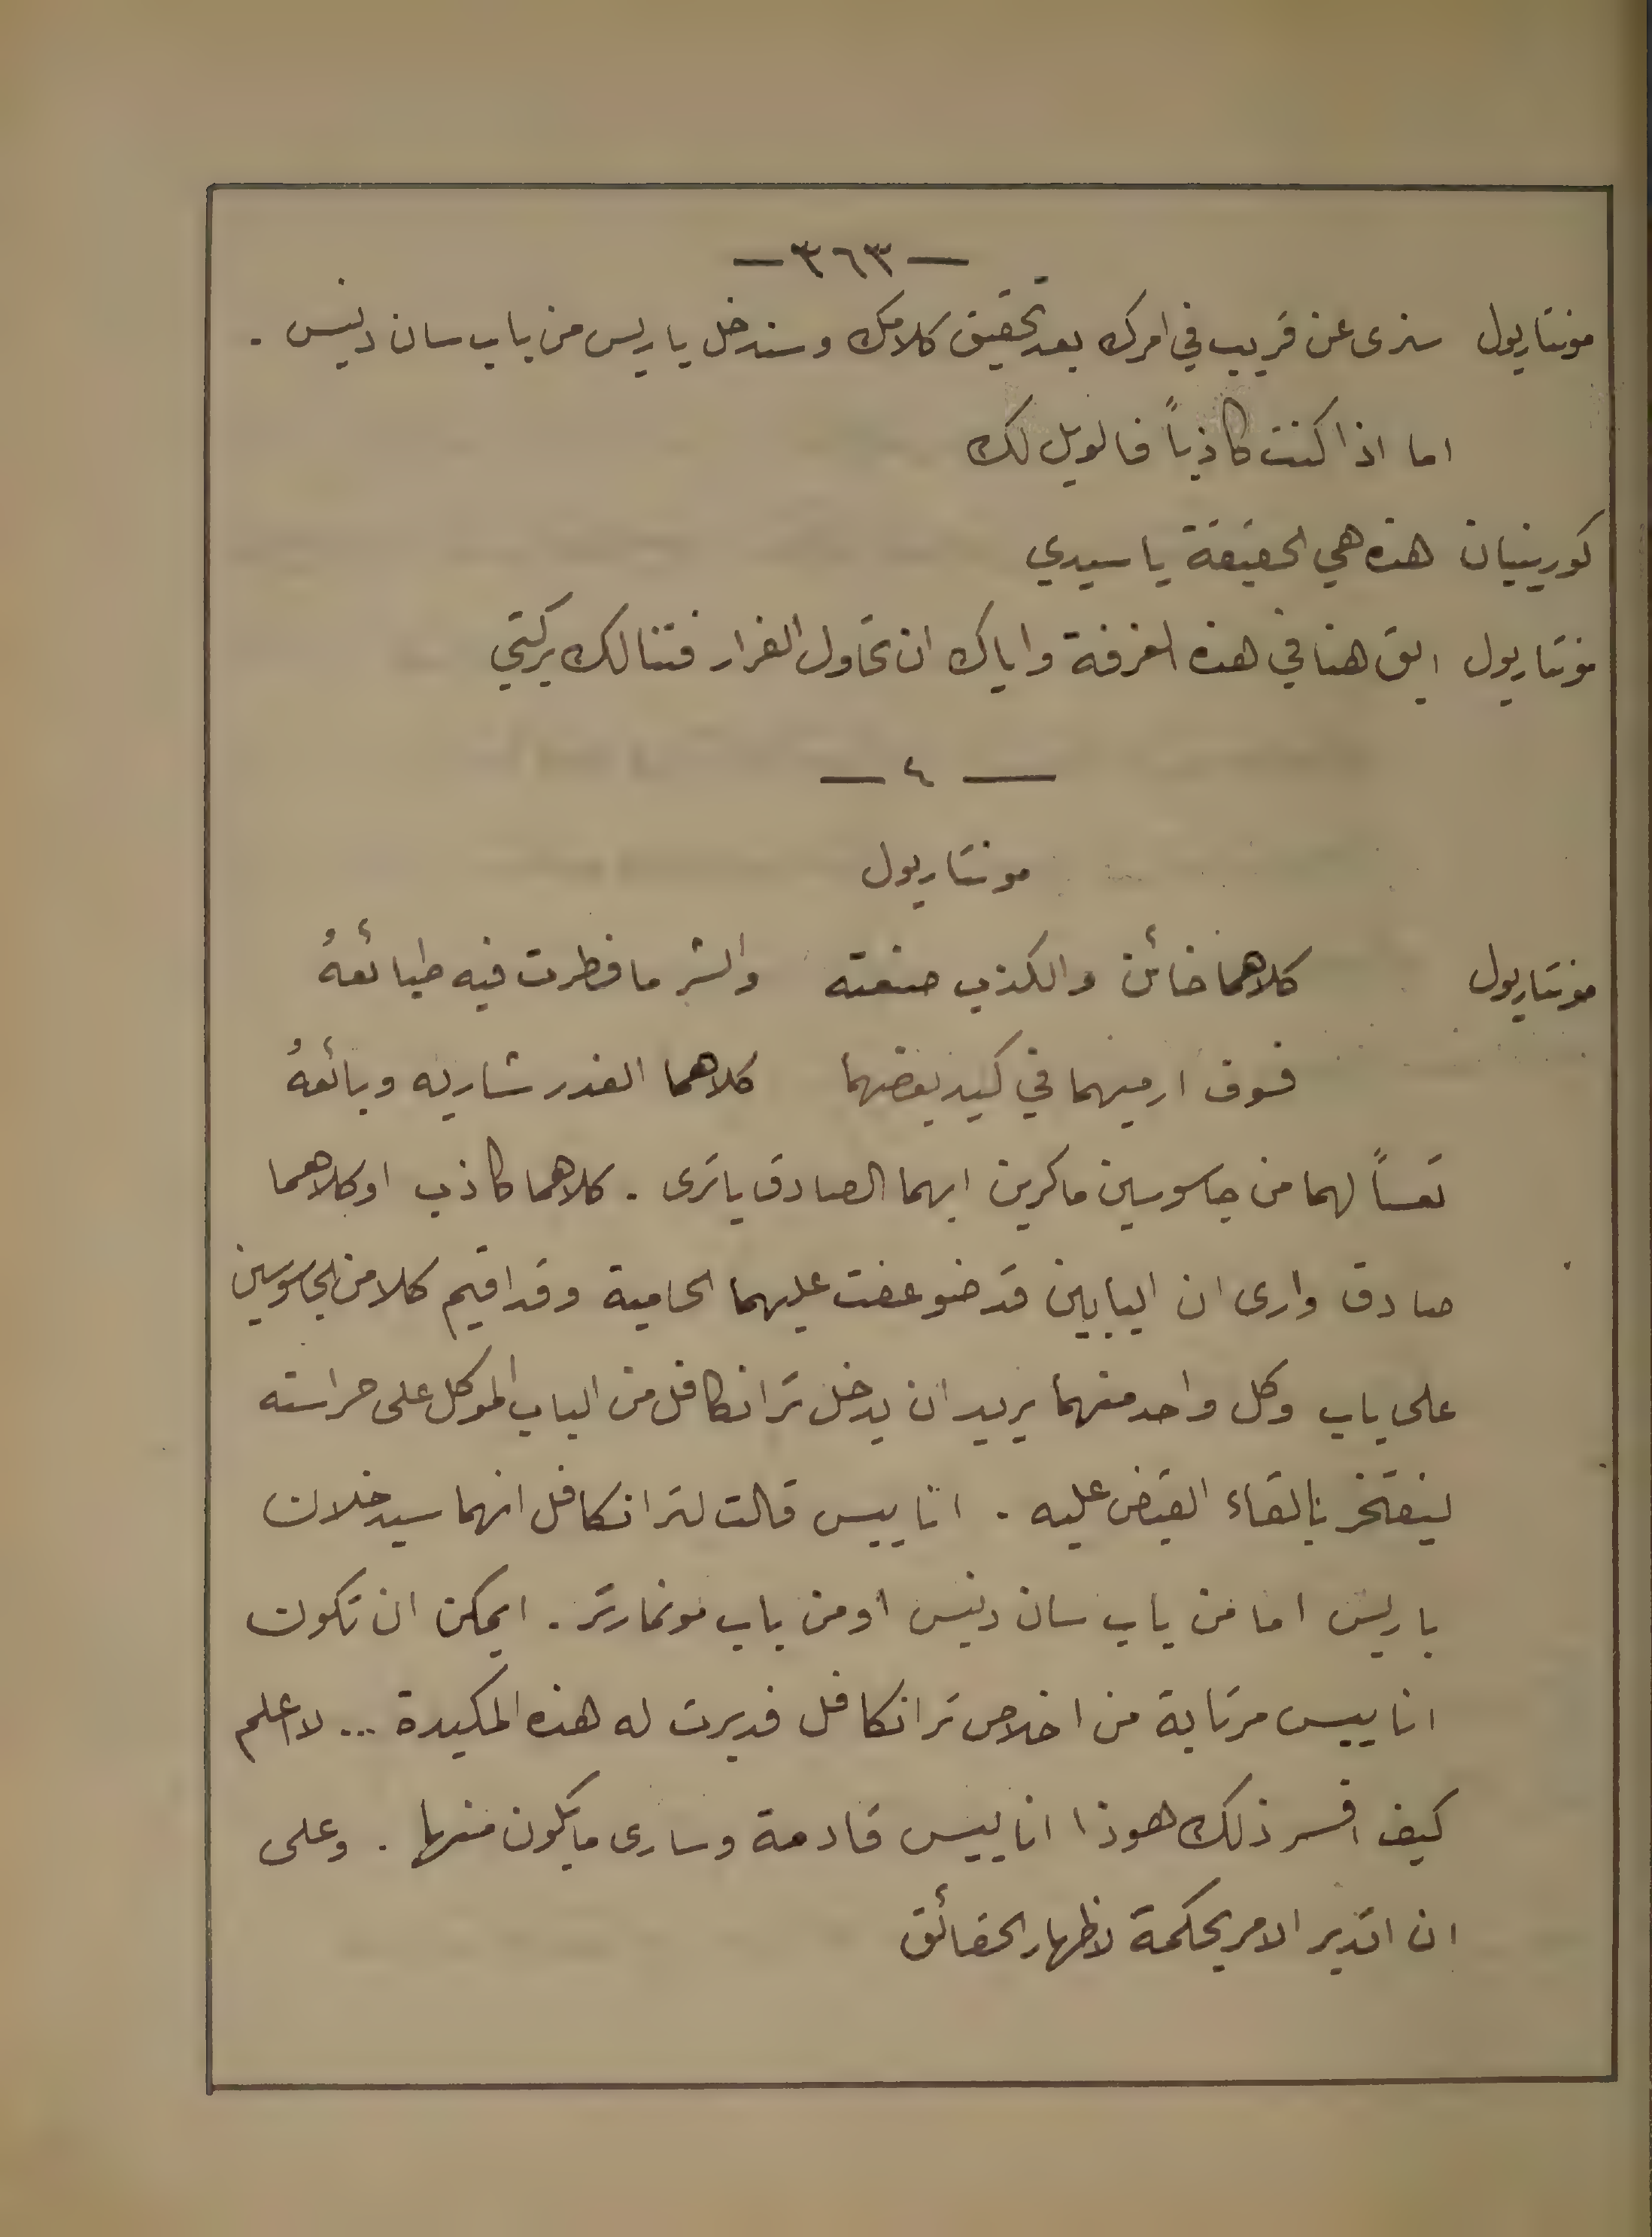 — ٣٦٣ —
مونتاريول سنرى عن قريب في امرك بعد تحقيق كلامك وسندخل باريس من باب سان دنيس .
اما اذا كنت كاذباً فالويل لك
كورينيان هذه هي الحقيقة يا سيدي
مونتاريول ابق هنا في هذه الغرفة واياك ان تحاول الفرار فتنالك بركتي
— ٤ —
مونتاريول
مونتاريول كلاهما خائن والكذب صنعته والشر ما فطرت فيه طبائعهُ
فسوف ارميهما في كيد بعضهما كلاهما الغدر شاريه وبائعهُ
تعساً لهما من جاسوسين ماكرين ايهما الصادق يا ترى . كلاهما كاذب او كلاهما
صادق وارى ان البابين قد ضوعفت عليهما الحامية وقد اقيم كلا من الجاسوسين
على باب وكل واحد منهما يريد ان يدخل ترانكافل من الباب الموكل على حراسته
ليفتخر بالقاء القبض عليه . اناييس قالت لترانكافل انهما سيدخلان
باريس اما من باب سان دنيس او من باب مونمارتر . ايمكن ان تكون
اناييس مرتابة من اخلاص ترانكافل فدبرت له هذه المكيدة ... لا اعلم
كيف افسر ذلك هوذا اناييس قادمة وسارى ما يكون منها . وعلى
ان اتدبر الامر بحكمة لاظهار الحقائق